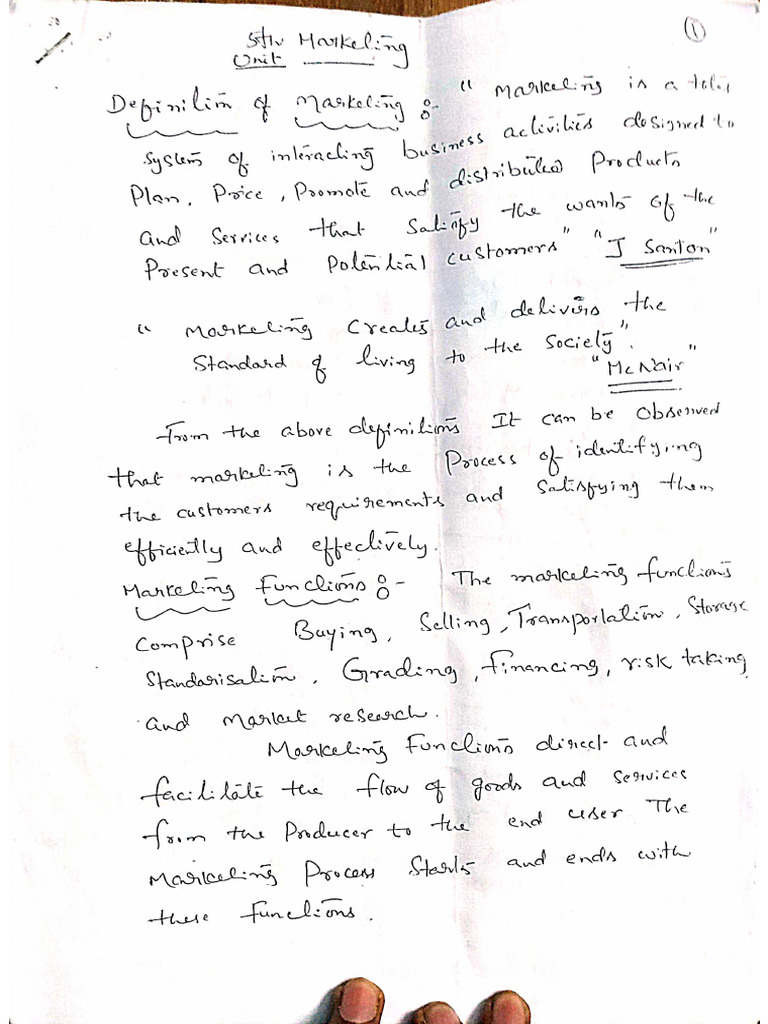 ①
5th Marketing
Unit
Definition of Marketing :- " Marketing is a total
system of interacting business activities designed to
Plan, Price, Promote and distributed Products
and Services that Satisfy the wants of the
Present and Potential customers" "J Santon"
" Marketing Creates and delivers the
Standard of living to the Society".
"Mc Nair"
From the above definitions It can be Observed
that marketing is the Process of identifying
the customers requirements and Satisfying them
efficiently and effectively.
Marketing Functions :- The marketing functions
Comprise Buying, Selling, Transportation, Storage
Standarisation, Grading, Financing, risk taking
and Market research.
Marketing Functions direct and
facilitate the flow of goods and services
from the Producer to the end user The
Marketing Process Starts and ends with
these functions.